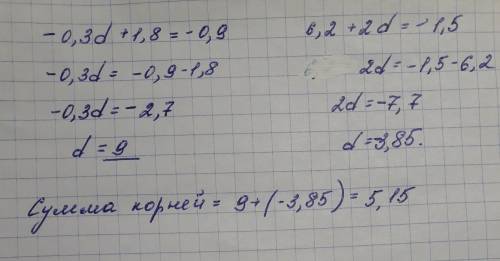 -0,3d + 1,8 = -0,9
-0,3d = -0,9-1,8
-0,3d = -2,7
d = 9
6,2 + 2d = -1,5
2d = -1,5-6,2
2d = -7,7
d = -3,85.
Сумма корней = 9+(-3,85) = 5,15